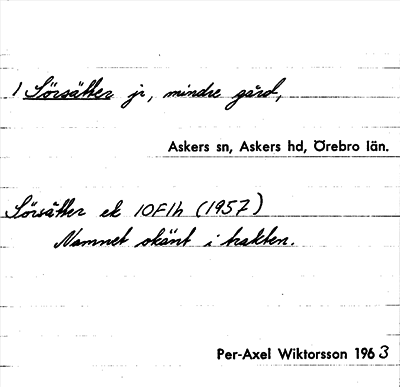 1 Sörsätter jr, mindre gård,
Askers sn, Askers hd, Örebro län.
Sörsätter ek 10F1h (1957)
Namnet okänt i trakten.
Per-Axel Wiktorsson 1963